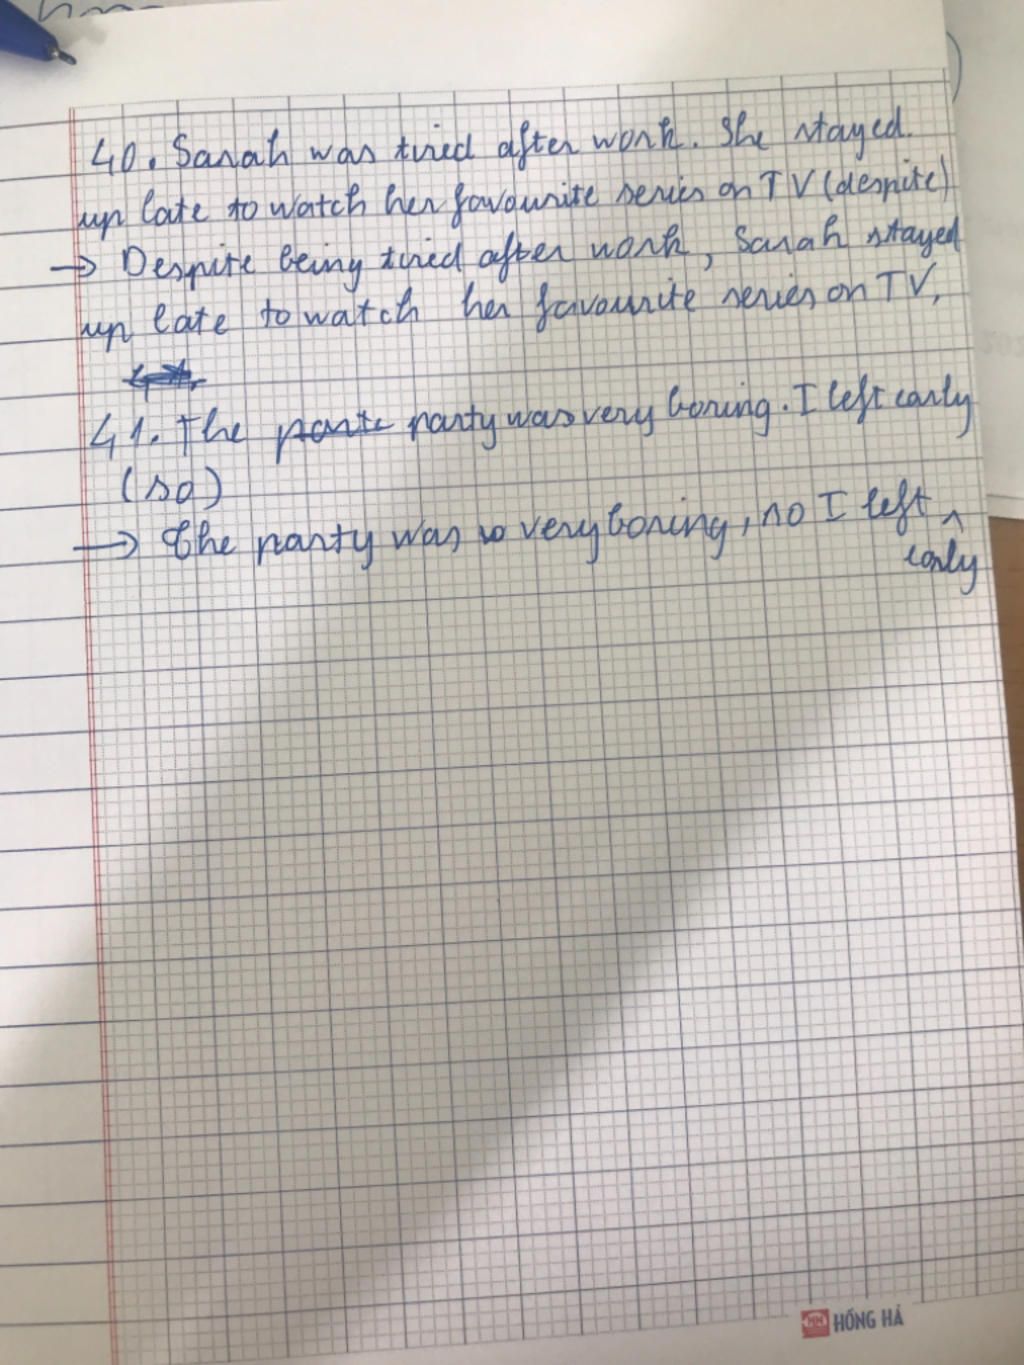 40. Sarah was tired after work. She stayed.
up late to watch her favourite series on TV (despite)
→ Despite being tired after work, Sarah stayed
up late to watch her favourite series on TV.
41. The party was very boring. I left early
(so)
→ The party was very boring, so I left ^
early
HỒNG HÀ